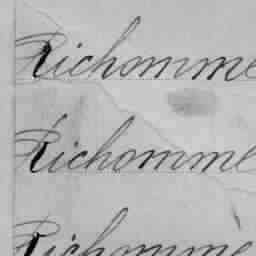 Richomme
Richomme
Richomme